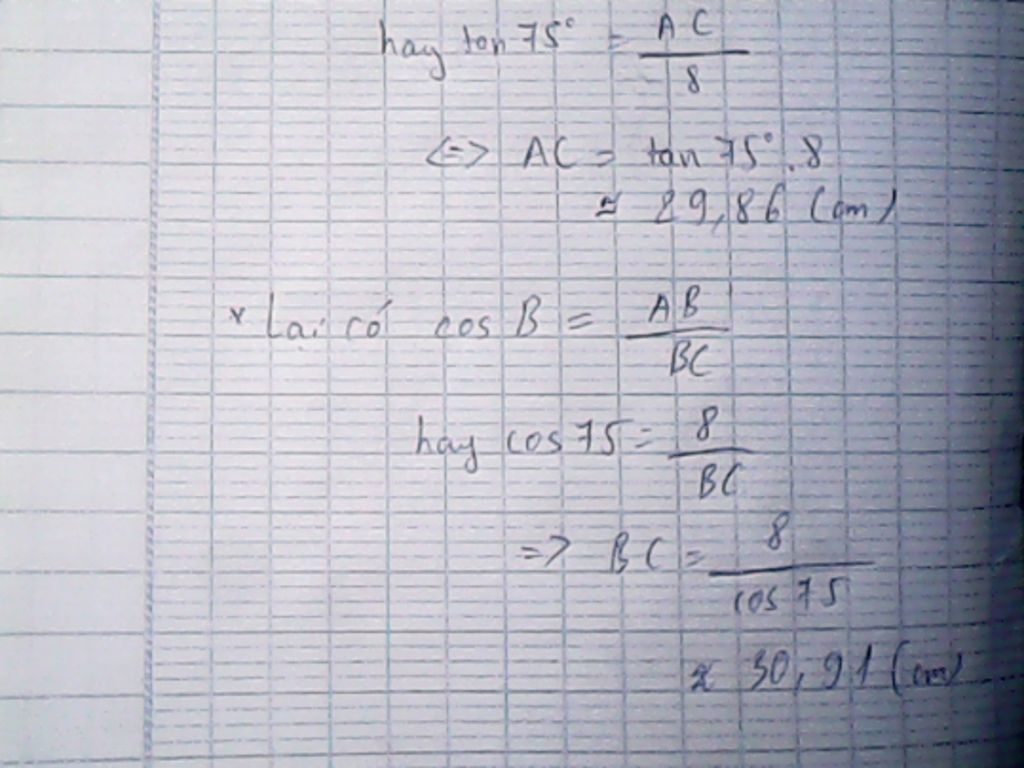 hay tan 75° = AC / 8
<=> AC = tan 75° . 8
≈ 29,86 (cm)
* Lại có cos B = AB / BC
hay cos 75 = 8 / BC
=> BC = 8 / cos 75
≈ 30,91 (cm)